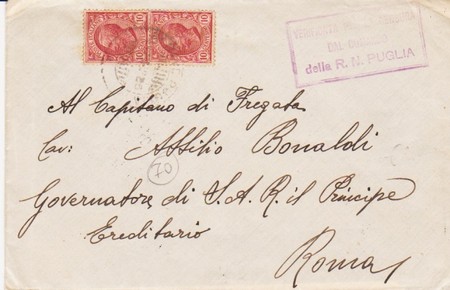 10 10
VERIFICATO
della R. N. PUGLIA
Al Capitano di Fregata
Cav: Attilio Bonaldi
70
Governatore di S. A. R. il Principe
Ereditario
Roma